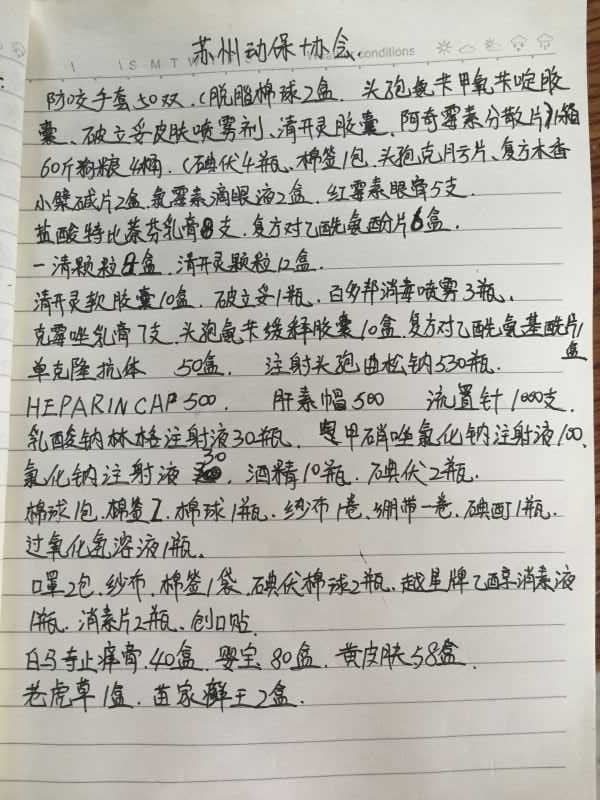 苏州动保协会.
I S M T W conditions
防咬手套50双,(脱脂棉球2盒. 头孢氨苄甲氧苄啶胶
囊、破立妥皮肤喷雾剂、清开灵胶囊、阿奇霉素分散片)1箱
60斤狗粮4桶,(碘伏4瓶、棉签1包、头孢克月亏片、复方木香
小檗碱片2盒、氯霉素滴眼液2盒、红霉素眼膏5支.
盐酸特比萘芬乳膏8支、复方对乙酰氨酚片6盒.
一清颗粒9盒. 清开灵颗粒12盒.
清开灵软胶囊10盒. 破立妥1瓶、百多邦消毒喷雾3瓶、
克霉唑乳膏7支、头孢氨苄缓释胶囊10盒、复方对乙酰氨基酰片1盒
单克隆抗体 50盒. 注射头孢曲松钠530瓶.
HEPARIN CAP 500. 肝素帽500 流置针1000支.
乳酸钠林格注射液30瓶、甲硝唑氯化钠注射液100、
氯化钠注射液30, 酒精10瓶、碘伏2瓶.
棉球1包、棉签2、棉球1瓶、纱布1卷、绷带一卷、碘酊1瓶.
过氧化氢溶液1瓶、
口罩2包、纱布、棉签1袋、碘伏棉球2瓶、越星牌乙醇消素液
1瓶、消素片2瓶、创口贴.
白马寺止痒膏. 40盒. 婴宝80盒. 黄皮肤58盒.
老虎草1盒. 苗家癣王2盒.